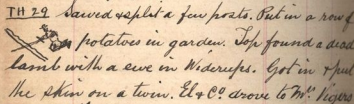 TH 29 Sawed & split a few posts. Put in a row of
potatoes in garden. Top found a dead
lamb with a ewe in Widerups. Got in & put
the skin on a twin. El & Co drove to Mr. Vigars